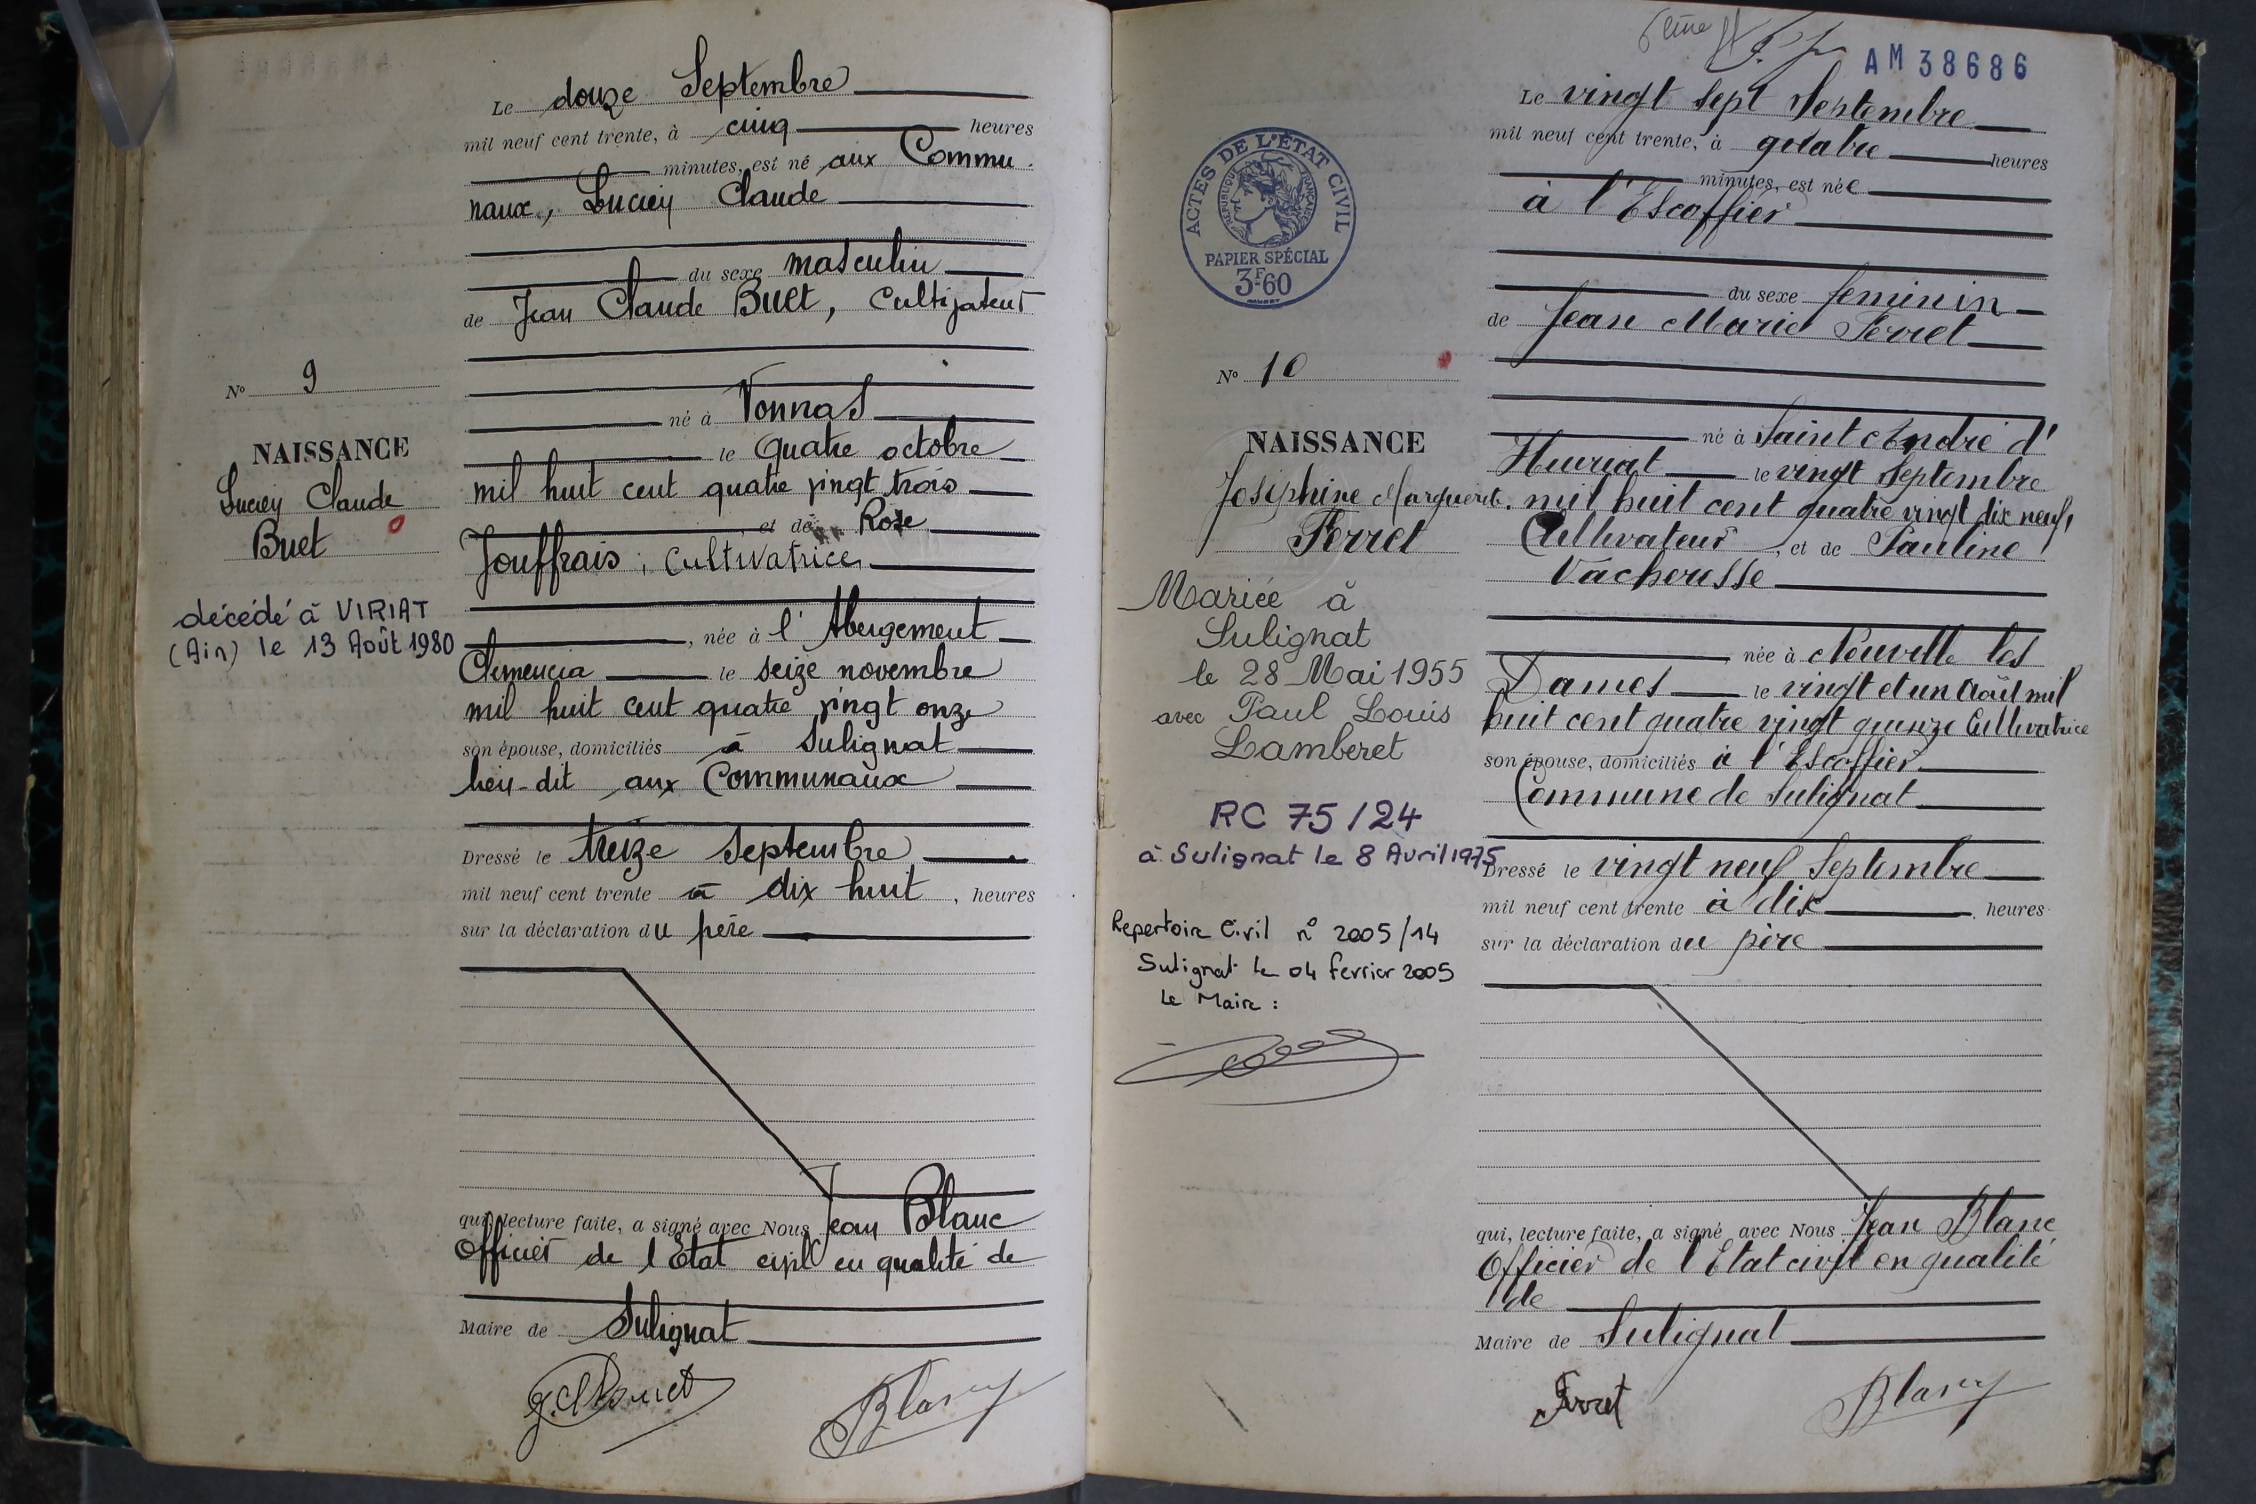 Le douze Septembre
mil neuf cent trente, à cinq heures
minutes, est né aux Commu-
naux, Lucien Claude
du sexe masculin
de Jean Claude Buet, Cultivateur
né à Vonnas
le quatre octobre
mil huit cent quatre vingt trois
et de Rose
Jouffrais, Cultivatrice
, née à l'Abergement
Clémencia le seize novembre
mil huit cent quatre vingt onze
son épouse, domiciliés à Sulignat
lieu-dit aux Communaux
Dressé le treize Septembre
mil neuf cent trente à dix huit, heures
sur la déclaration du père
qui, lecture faite, a signé avec Nous Jean Blanc
Officier de l'Etat civil en qualité de
Maire de Sulignat
Blanc
No 9
NAISSANCE
Lucien Claude
Buet
décédé à VIRIAT
(Ain) le 13 Août 1980
AM 38686
ACTES DE L'ÉTAT CIVIL
RÉPUBLIQUE FRANÇAISE
PAPIER SPÉCIAL
3F60
No 10
NAISSANCE
Joséphine Marguerite
Ferret
Mariée à
Sulignat
le 28 Mai 1955
avec Paul Louis
Lamberet
RC 75/24
à Sulignat le 8 Avril 1975
Repertoire Civil n° 2005/14
Sulignat le 04 fevrier 2005
Le Maire :
Le vingt sept Septembre
mil neuf cent trente, à quatre heures
minutes, est née
à l'Escoffier
du sexe feminin
de Jean Marie Ferret
né à Saint André d'
Huiriat le vingt Septembre
mil huit cent quatre vingt dix neuf,
Cultivateur, et de Pauline
Vacheresse
née à Neuville les
Dames le vingt et un Août mil
huit cent quatre vingt quinze Cultivatrice
son épouse, domiciliés à l'Escoffier
Commune de Sulignat
Dressé le vingt neuf Septembre
mil neuf cent trente à dix heures
sur la déclaration du père
qui, lecture faite, a signé avec Nous Jean Blanc
Officier de l'Etat civil en qualité
de
Maire de Sulignat
Ferret Blanc